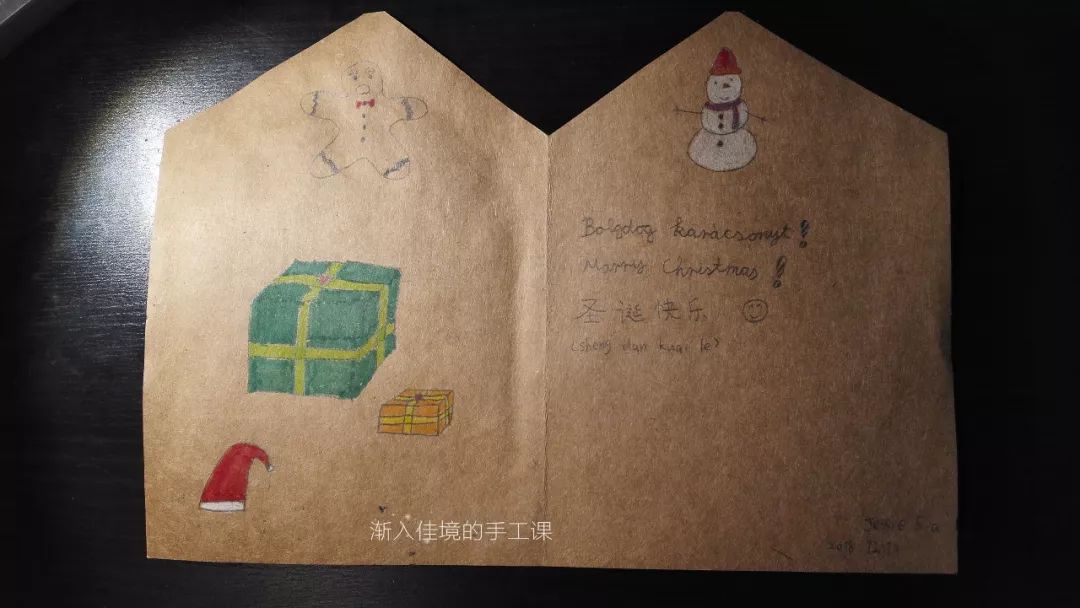 Boldog karácsonyt!
Marry Christmas!
圣诞快乐
(sheng dan kuai le)
渐入佳境的手工课
2018